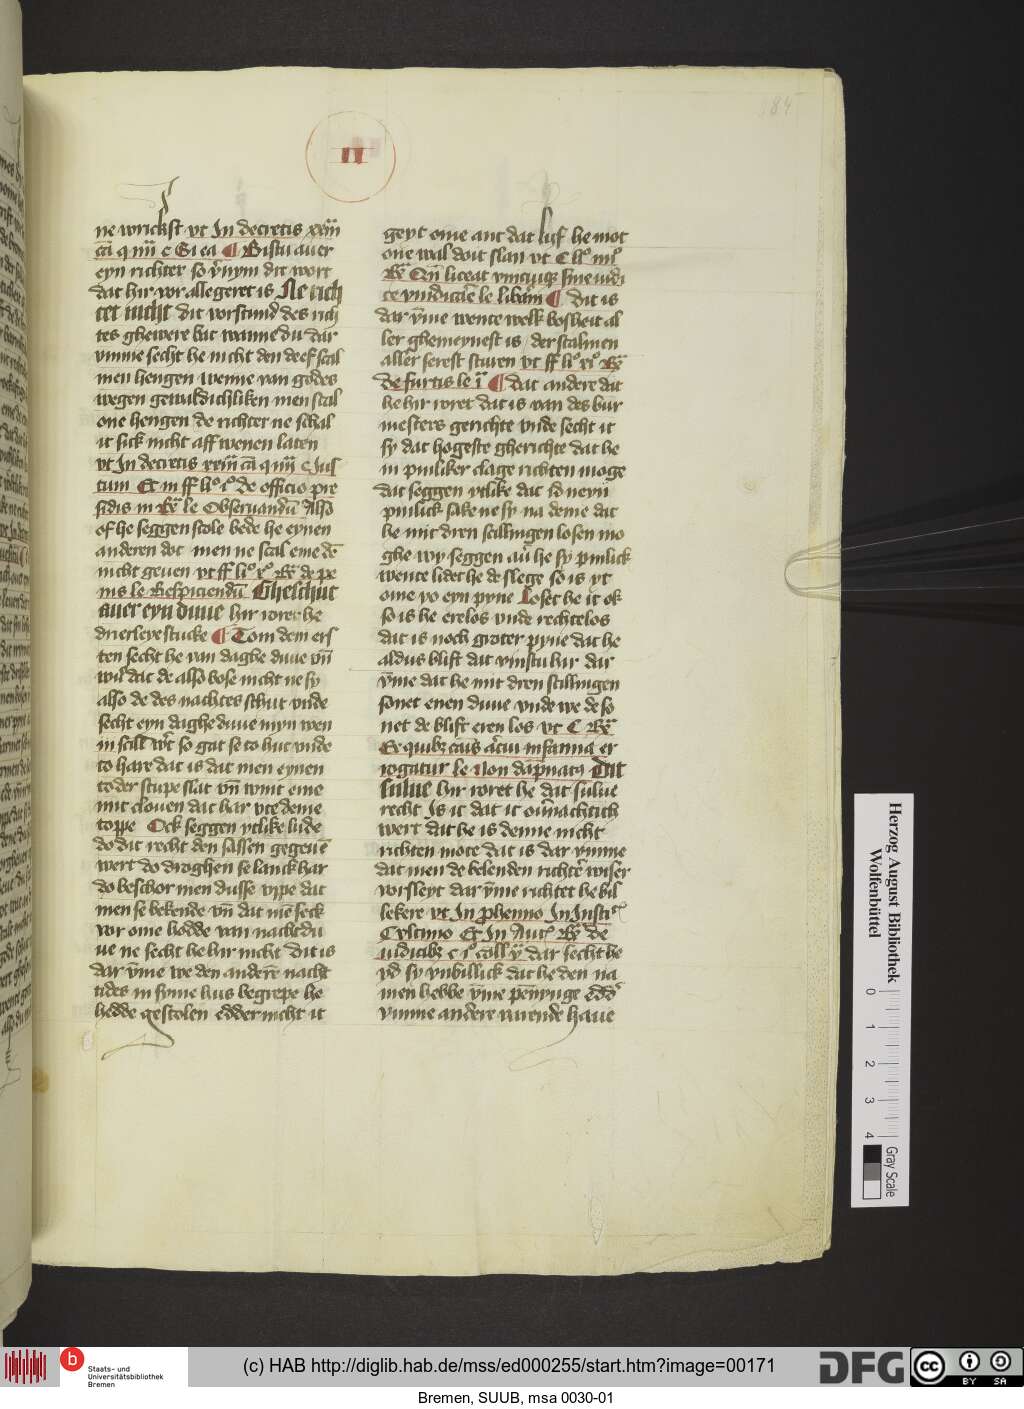 84
II
ne wrickst vt In decretis xxiii
cā q iiii c Si ea ¶ Bistu auer
eyn richter so v̄nym dit wort
dat hir vor allegeret is Ne rich
ter nicht dit vorstund des rich
tes ghewere but wanne du dar
vmme secht he nicht den deef scal
men hengen wenne van godes
wegen gewuldichliken men scal
one hengen de richter ne schal
it sick nicht aff wenen laten
vt In decretis xxiii cā q iiii c Jus
tum Et in ff li° i° de officio pre
sidis in Rx̄ le Obseruandū Also
of he seggen scole bede he eynen
anderen dot men ne scal eme dē
nicht geuen vt ff li° Rx̄ de pe
nis le Respiciendū Ghelchut
auer eyn duue hir roret he
drierleye stucke ¶ Tom dem ers
ten secht he van daghe duue vn̄
wil dat de also bose nicht ne sy
also de des nachtes schut vnde
secht eyn daghe duue myn wen
iii scill wert so gat se to hut vnde
to hare dat is dat men eynen
to der stupe slat vn̄ wint eme
mit clouen dat har vte deme
toppe Ock seggen ytlike lude
do dit recht den sassen gegeuē
wert do droghen se lanck har
do beschor men dusse vppe dat
men se bekende vn̄ dat mē seck
vor eme hodde van nacht du
ue ne secht he hir nicht dit is
dar v̄me we den anderē nacht
tides in syme hus begrepe he
hedde gestolen edder nicht it
geyt ome ant dat lif he mot
one wal doit slan vt C li° iii°
Rx̄ Qn̄ liceat vnicuiq sine iudi
ce vindicāe le libam ¶ dit is
dar v̄me wente welk bosheit al
ler ghemeynest is der stal men
aller serest sturen vt ff li° Rx̄
de furtis le i ¶ dat andere dat
he hir roret dat is van des bur
mesters gerichte vnde secht it
sy dat hogeste gherichte dat he
in pinliker clage richten moge
dat seggen ytlike dat id neyn
pinlick sake ne sy na deme dat
he mit dren scillingen losen mo
ghe wy seggen auer he sy pinlick
wente lidet he de slege so is yt
ome yo eyn pyne Loset he it ok
so is he erelos vnde rechtelos
dat is noch groter pyne dat he
aldus blift dat vinstu hir dar
v̄me dat he mit dren scillingen
sonet enen duue vnde we de so
net de blift eren los vt C Rx̄
Ex quibz caūs infamia er
rogatur le Non dāpnatus Dit
sulue hir roret he dat sulue
recht Is it dat it ouernachtich
wert dat he is denne nicht
richten mote dat is dar vmme
dat men de belenden richter wiser
vorsleyt dar v̄me richtet he bil
lekere vt In phenno In Insti
Cysimo Et In Aut Rx̄ De
iudicibz c i° coll v dar secht he
yd sy vnbillick dat he den na
men hebbe v̄me pēnynge edd
vmme andere wende haue
Herzog August Bibliothek
Wolfenbüttel
0 1 2 3 4
Gray Scale
b
Staats- und
Universitätsbibliothek
Bremen
(c) HAB http://diglib.hab.de/mss/ed000255/start.htm?image=00171
DFG
cc BY SA
Bremen, SUUB, msa 0030-01